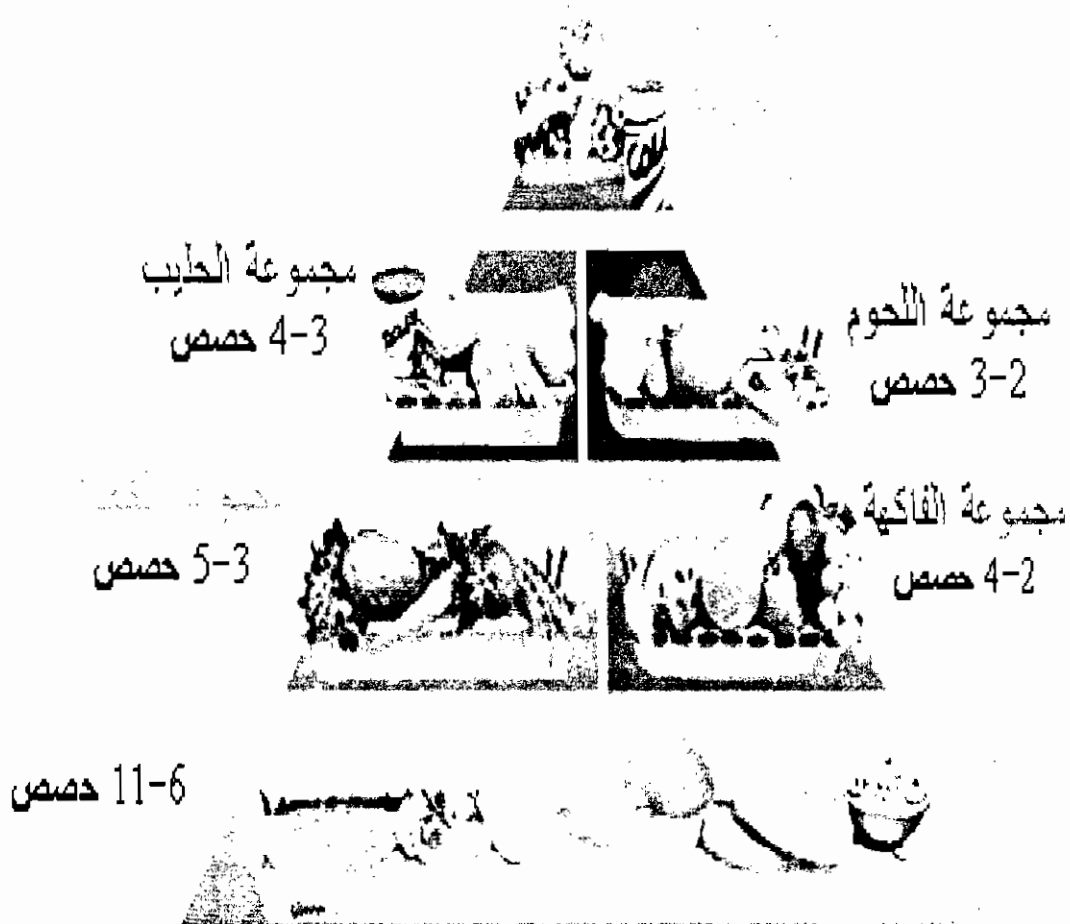 مجموعة الحليب
3-4 حصص
مجموعة اللحوم
2-3 حصص
3-5 حصص
مجموعة الفاكهة
2-4 حصص
6-11 حصص